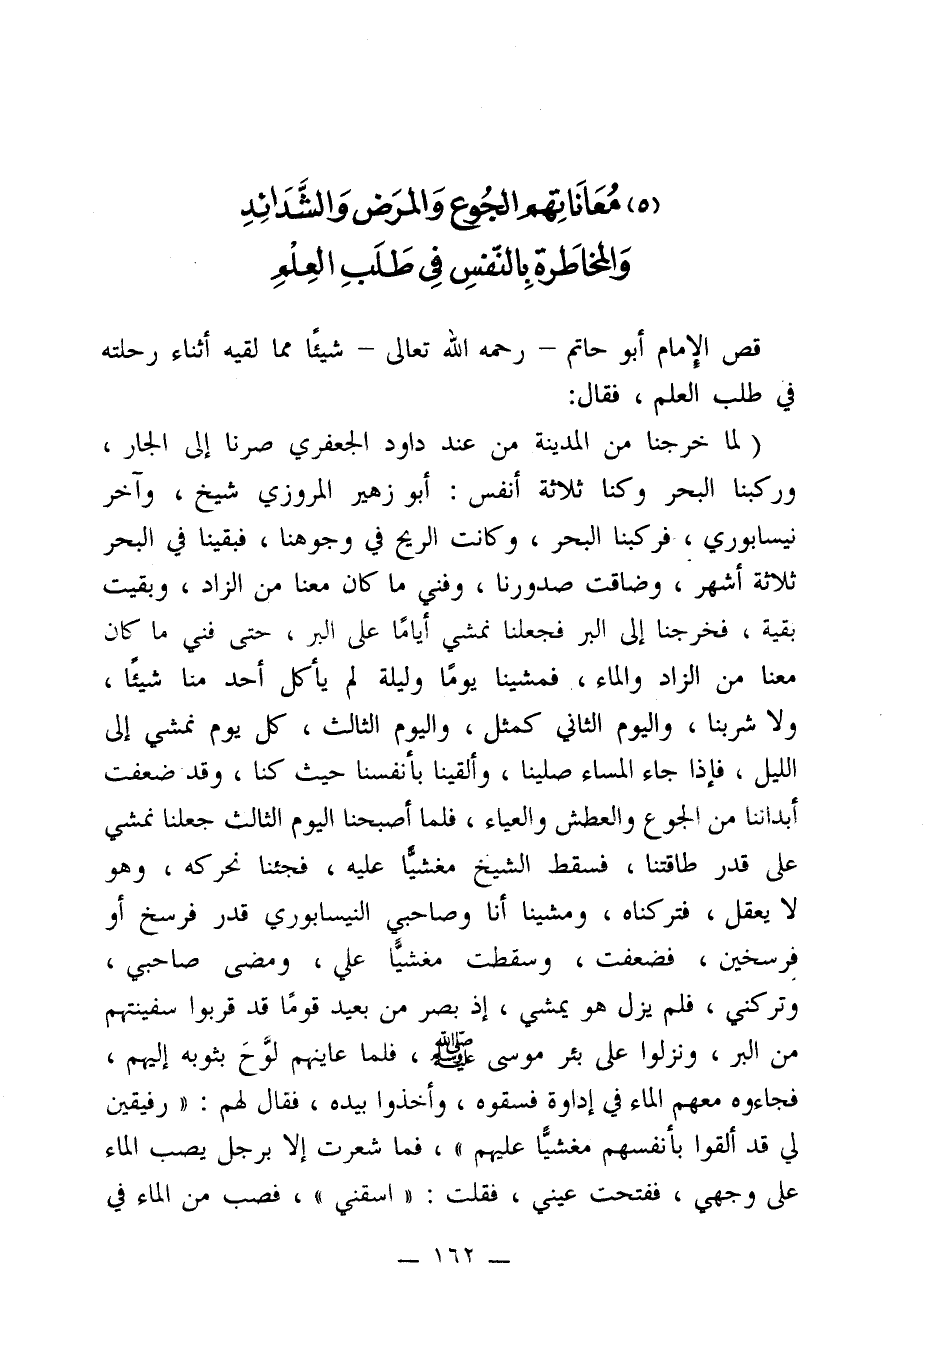 (٥) مُعَانَاتِهم الجُوع وَالمرَض وَالشَّدَائِدِ
وَالمخاطَرة بِالنّفسِ فِي طَلَبِ العِلْمِ
قص الإمام أبو حاتم – رحمه الله تعالى – شيئًا مما لقيه أثناء رحلته
في طلب العلم ، فقال:
( لما خرجنا من المدينة من عند داود الجعفري صرنا إلى الجار ،
وركبنا البحر وكنا ثلاثة أنفس : أبو زهير المروزي شيخ ، وآخر
نيسابوري ، فركبنا البحر ، وكانت الريح في وجوهنا ، فبقينا في البحر
ثلاثة أشهر ، وضاقت صدورنا ، وفني ما كان معنا من الزاد ، وبقيت
بقية ، فخرجنا إلى البر فجعلنا نمشي أيامًا على البر ، حتى فني ما كان
معنا من الزاد والماء ، فمشينا يومًا وليلة لم يأكل أحد منا شيئًا ،
ولا شربنا ، واليوم الثاني كمثل ، واليوم الثالث ، كل يوم نمشي إلى
الليل ، فإذا جاء المساء صلينا ، وألقينا بأنفسنا حيث كنا ، وقد ضعفت
أبداننا من الجوع والعطش والعياء ، فلما أصبحنا اليوم الثالث جعلنا نمشي
على قدر طاقتنا ، فسقط الشيخ مغشيًّا عليه ، فجئنا نحركه ، وهو
لا يعقل ، فتركناه ، ومشينا أنا وصاحبي النيسابوري قدر فرسخ أو
فرسخين ، فضعفت ، وسقطت مغشيًّا علي ، ومضى صاحبي ،
وتركني ، فلم يزل هو يمشي ، إذ بصر من بعيد قومًا قد قربوا سفينتهم
من البر ، ونزلوا على بئر موسى ﷺ ، فلما عاينهم لوَّحَ بثوبه إليهم ،
فجاءوه معهم الماء في إداوة فسقوه ، وأخذوا بيده ، فقال لهم : « رفيقين
لي قد ألقوا بأنفسهم مغشيًّا عليهم » ، فما شعرت إلا برجل يصب الماء
على وجهي ، ففتحت عيني ، فقلت : « اسقني » ، فصب من الماء في
— ١٦٢ —